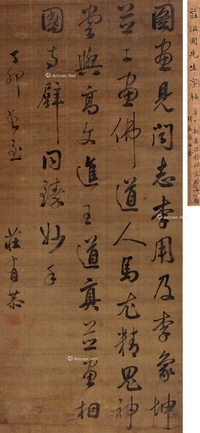 圖畫見聞志李用及李象坤
並工畫佛道人馬尤精鬼神
嘗與高文進王道真並畫相
國寺壁同臻妙手
丁卯
莊有恭
莊滋圃先生字軸